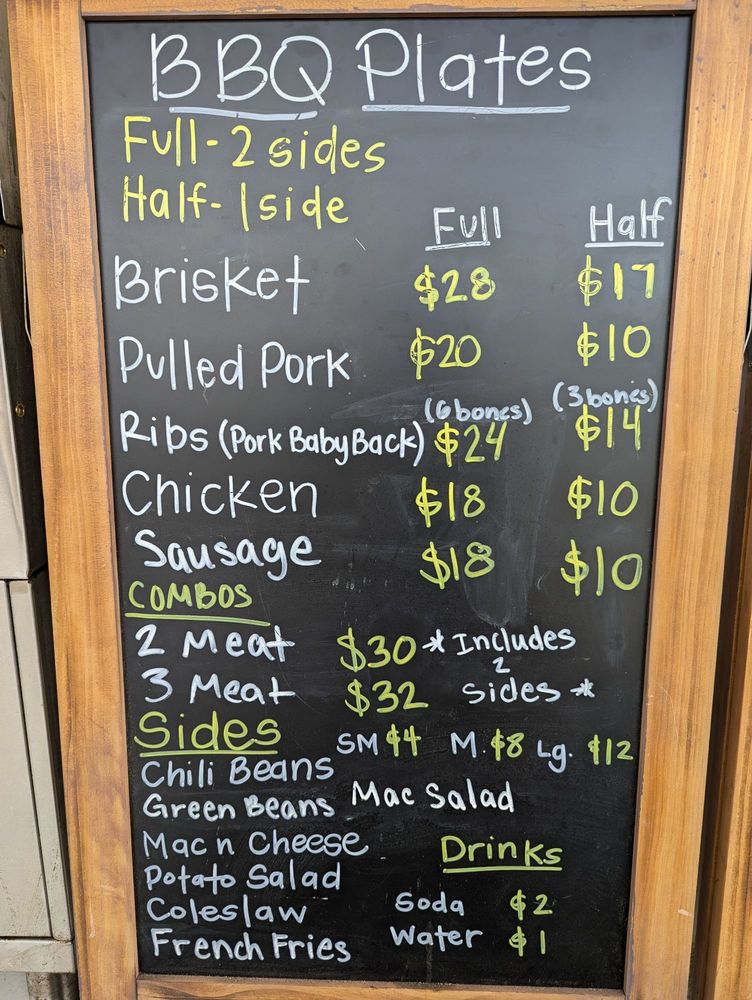 BBQ Plates
Full - 2 sides
Half - 1 side
Full Half
Brisket $28 $17
Pulled Pork $20 $10
(6 bones) (3 bones)
Ribs (Pork Baby Back) $24 $14
Chicken $18 $10
Sausage $18 $10
COMBOS
2 Meat $30 * Includes
2
3 Meat $32 sides *
Sides SM $4 M. $8 Lg. $12
Chili Beans
Green Beans Mac Salad
Mac n Cheese
Drinks
Potato Salad
Coleslaw Soda $2
French Fries Water $1